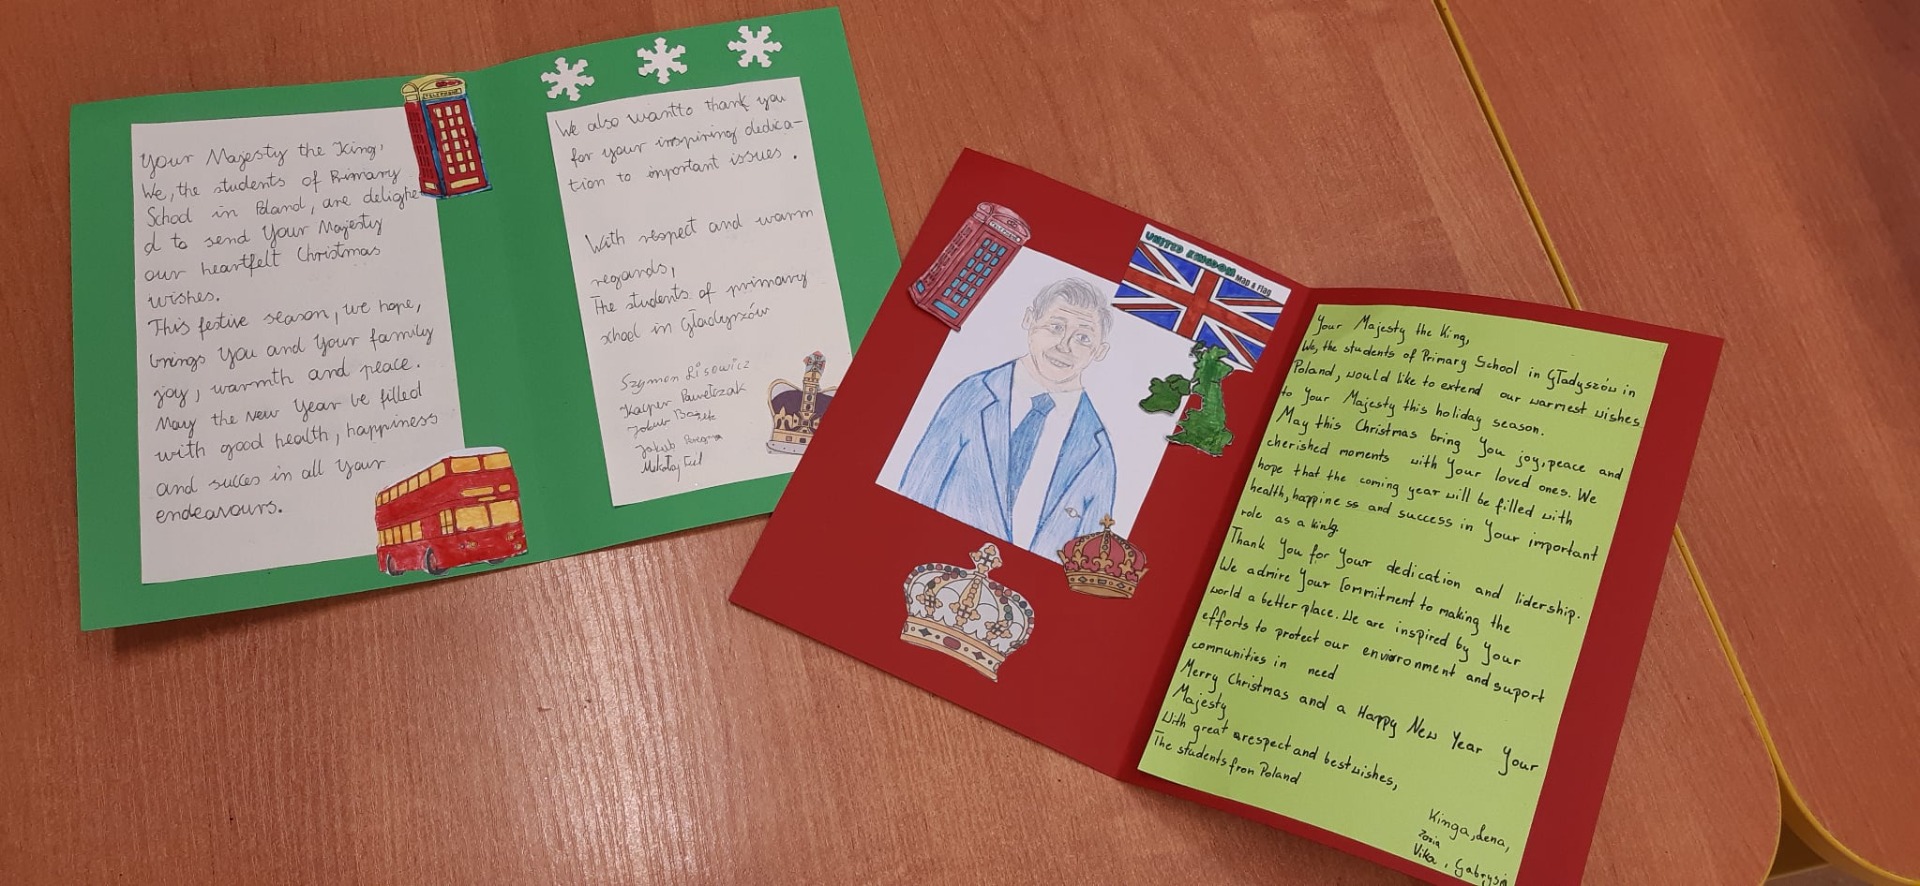 TELEPHONE
Your Majesty the King,
We, the students of Primary
School in Poland, are delighe-
d to send Your Majesty
our heartfelt Christmas
wishes.
This festive season, we hope,
brings You and Your family
joy, warmth and peace.
May the New Year be filled
with good health, happiness
and succes in all Your
endeavours.
We also want to thank you
for your inspiring dedica-
tion to important issues.
With respect and warm
regards,
The students of primary
school in Gładyszów
Szymon Lisowicz
Kacper Pawełczak
Jakub
Jakub
Mikołaj
TELEPHONE
UNITED KINGDOM MAP & FLAG
Your Majesty the King,
We, the students of Primary School in Gładyszów in
Poland, would like to extend our warmest wishes
to Your Majesty this holiday season.
May this Christmas bring You joy, peace and
cherished moments with Your loved ones. We
hope that the coming year will be filled with
health, happiness and success in Your important
role as a king.
Thank You for Your dedication and lidership.
We admire Your Commitment to making the
world a better place. We are inspired by Your
efforts to protect our environment and suport
communities in need
Merry Christmas and a Happy New Year Your
Majesty
With great respect and best wishes,
The students from Poland
Kinga, Lena,
Zosia
Vika, Gabrysia